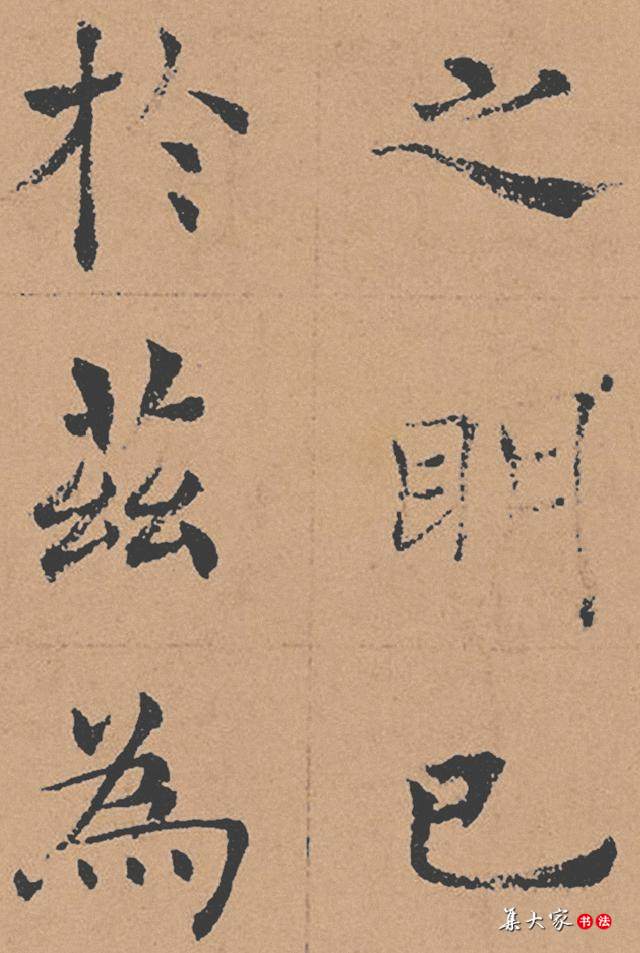 之明已
於茲為
集大家书法